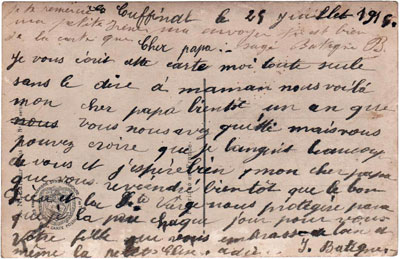 Cuffinat le 25 juillet 1915.
Je te remercie
ma petite Irène m'a envoyer et est bien
de la carte que Isaac Bategne B.
Cher papa:
Je vous écrit cette carte moi toute seule
sans le dire à maman nous voilà
mon cher papa bientôt un an que
nous vous nous avez quitté mais vous
pouvez croire que je languit beaucoup
de vous et j'espère bien mon cher papa
que vous reviendrez bientôt que le bon
Dieu et la Ste Vierge nous protège pour ça
que je la prie chaque jour pour vous
votre fille que vous embrasse de loin
même la petite Irène. adieu. J. Bategne